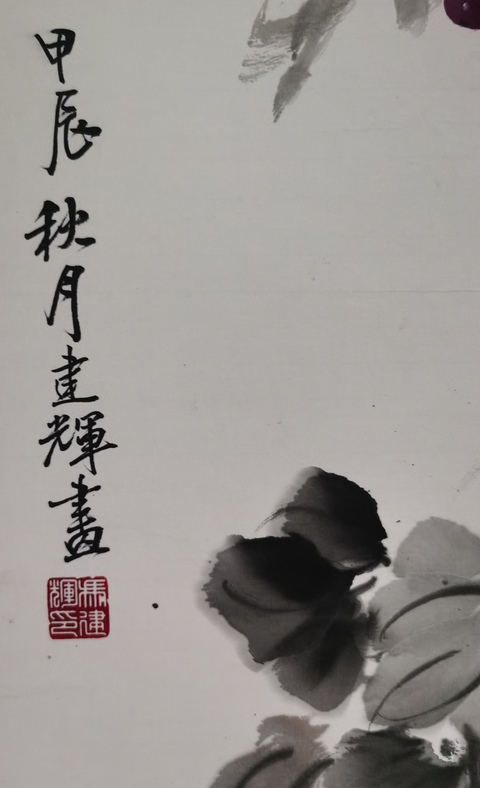 甲辰秋月建輝畫
馬建輝印